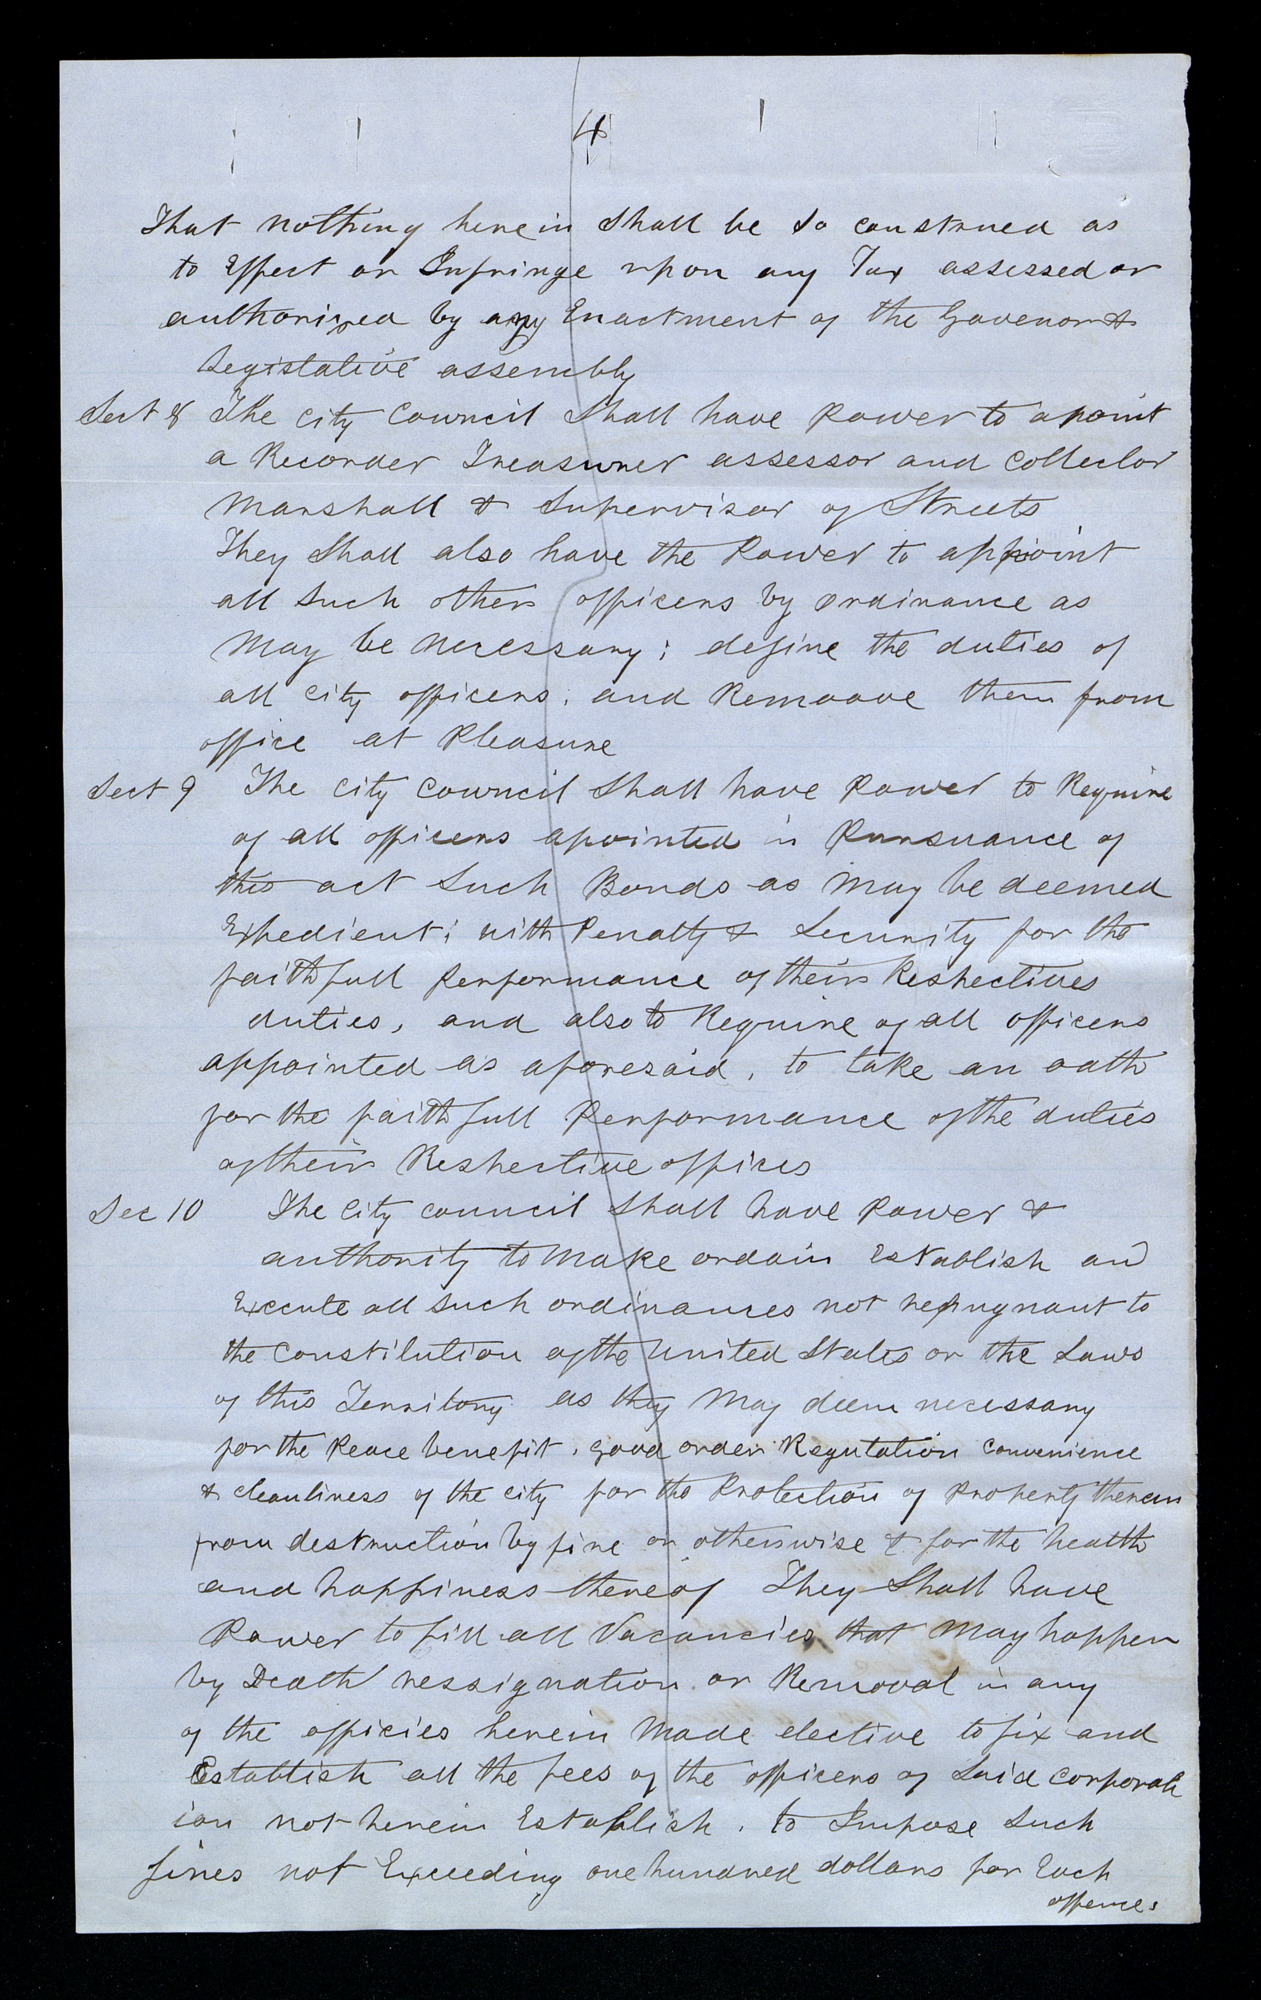 4
That nothing herein shall be so construed as
to Effect or Infringe upon any Tax assessed or
authorized by any Enactment of the Govenor &
Legislative assembly
Sect 8 The city Council Shall have Power to apoint
a Recorder Treasurer assessor and Collector
Marshall & Supervisor of Streets
They Shall also have the Power to appoint
all Such other officers by ordinance as
May be Necessary; define the duties of
all city officers, and Remoove them from
office at Pleasure
Sect 9 The city Council Shall have Power to Require
of all officers apointed in Pursuance of
this act Such Bonds as May be deemed
Expedient; with Penalty & Security for the
faithfull Performance of their Respectives
duties, and also to Require of all officers
appointed as aforesaid, to take an oath
for the faithfull Performance of the duties
of their Respective offices
Sec 10 The City council Shall have Power &
authority to Make ordain Establish and
Execute all such ordinances not repugnant to
the Constitution of the United States or the Laws
of this Territory as they May deem necessary
for the Peace benefit, good order Regulation Convenience
& cleanliness of the city for the Protection of Property therein
from destruction by fire or otherwise & for the health
and happiness thereof They Shall have
Power to fill all Vacancies that May happen
by Death ressignation or Removal in any
of the officies herein Made elective to fix and
Establish all the fees of the officers of Said corporat
ion not herein Establish, to Impose Such
fines not Exceeding one hundred dollars for Each
offence;